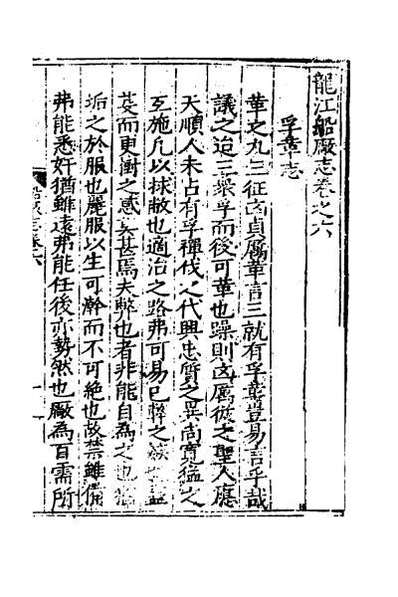 龍江船厰志卷之六
孚革志
革之九三征凶貞厲革言三就有孚革豈易言乎哉
議之迨三衆孚而後可革也躁則凶厲彼之聖人應
天順人未占有孚禪伐之代興忠質之異尚寬猛之
互施凡以捄敝也適治之路弗可易已弊之
芟而更衡之惑矣甚焉夫弊也者非能自為之也
垢之於服也麗服以生可澣而不可絶也故禁雖備
弗能悉奸猶雖遠弗能任後亦勢然也厰為百需所
船厰志卷六